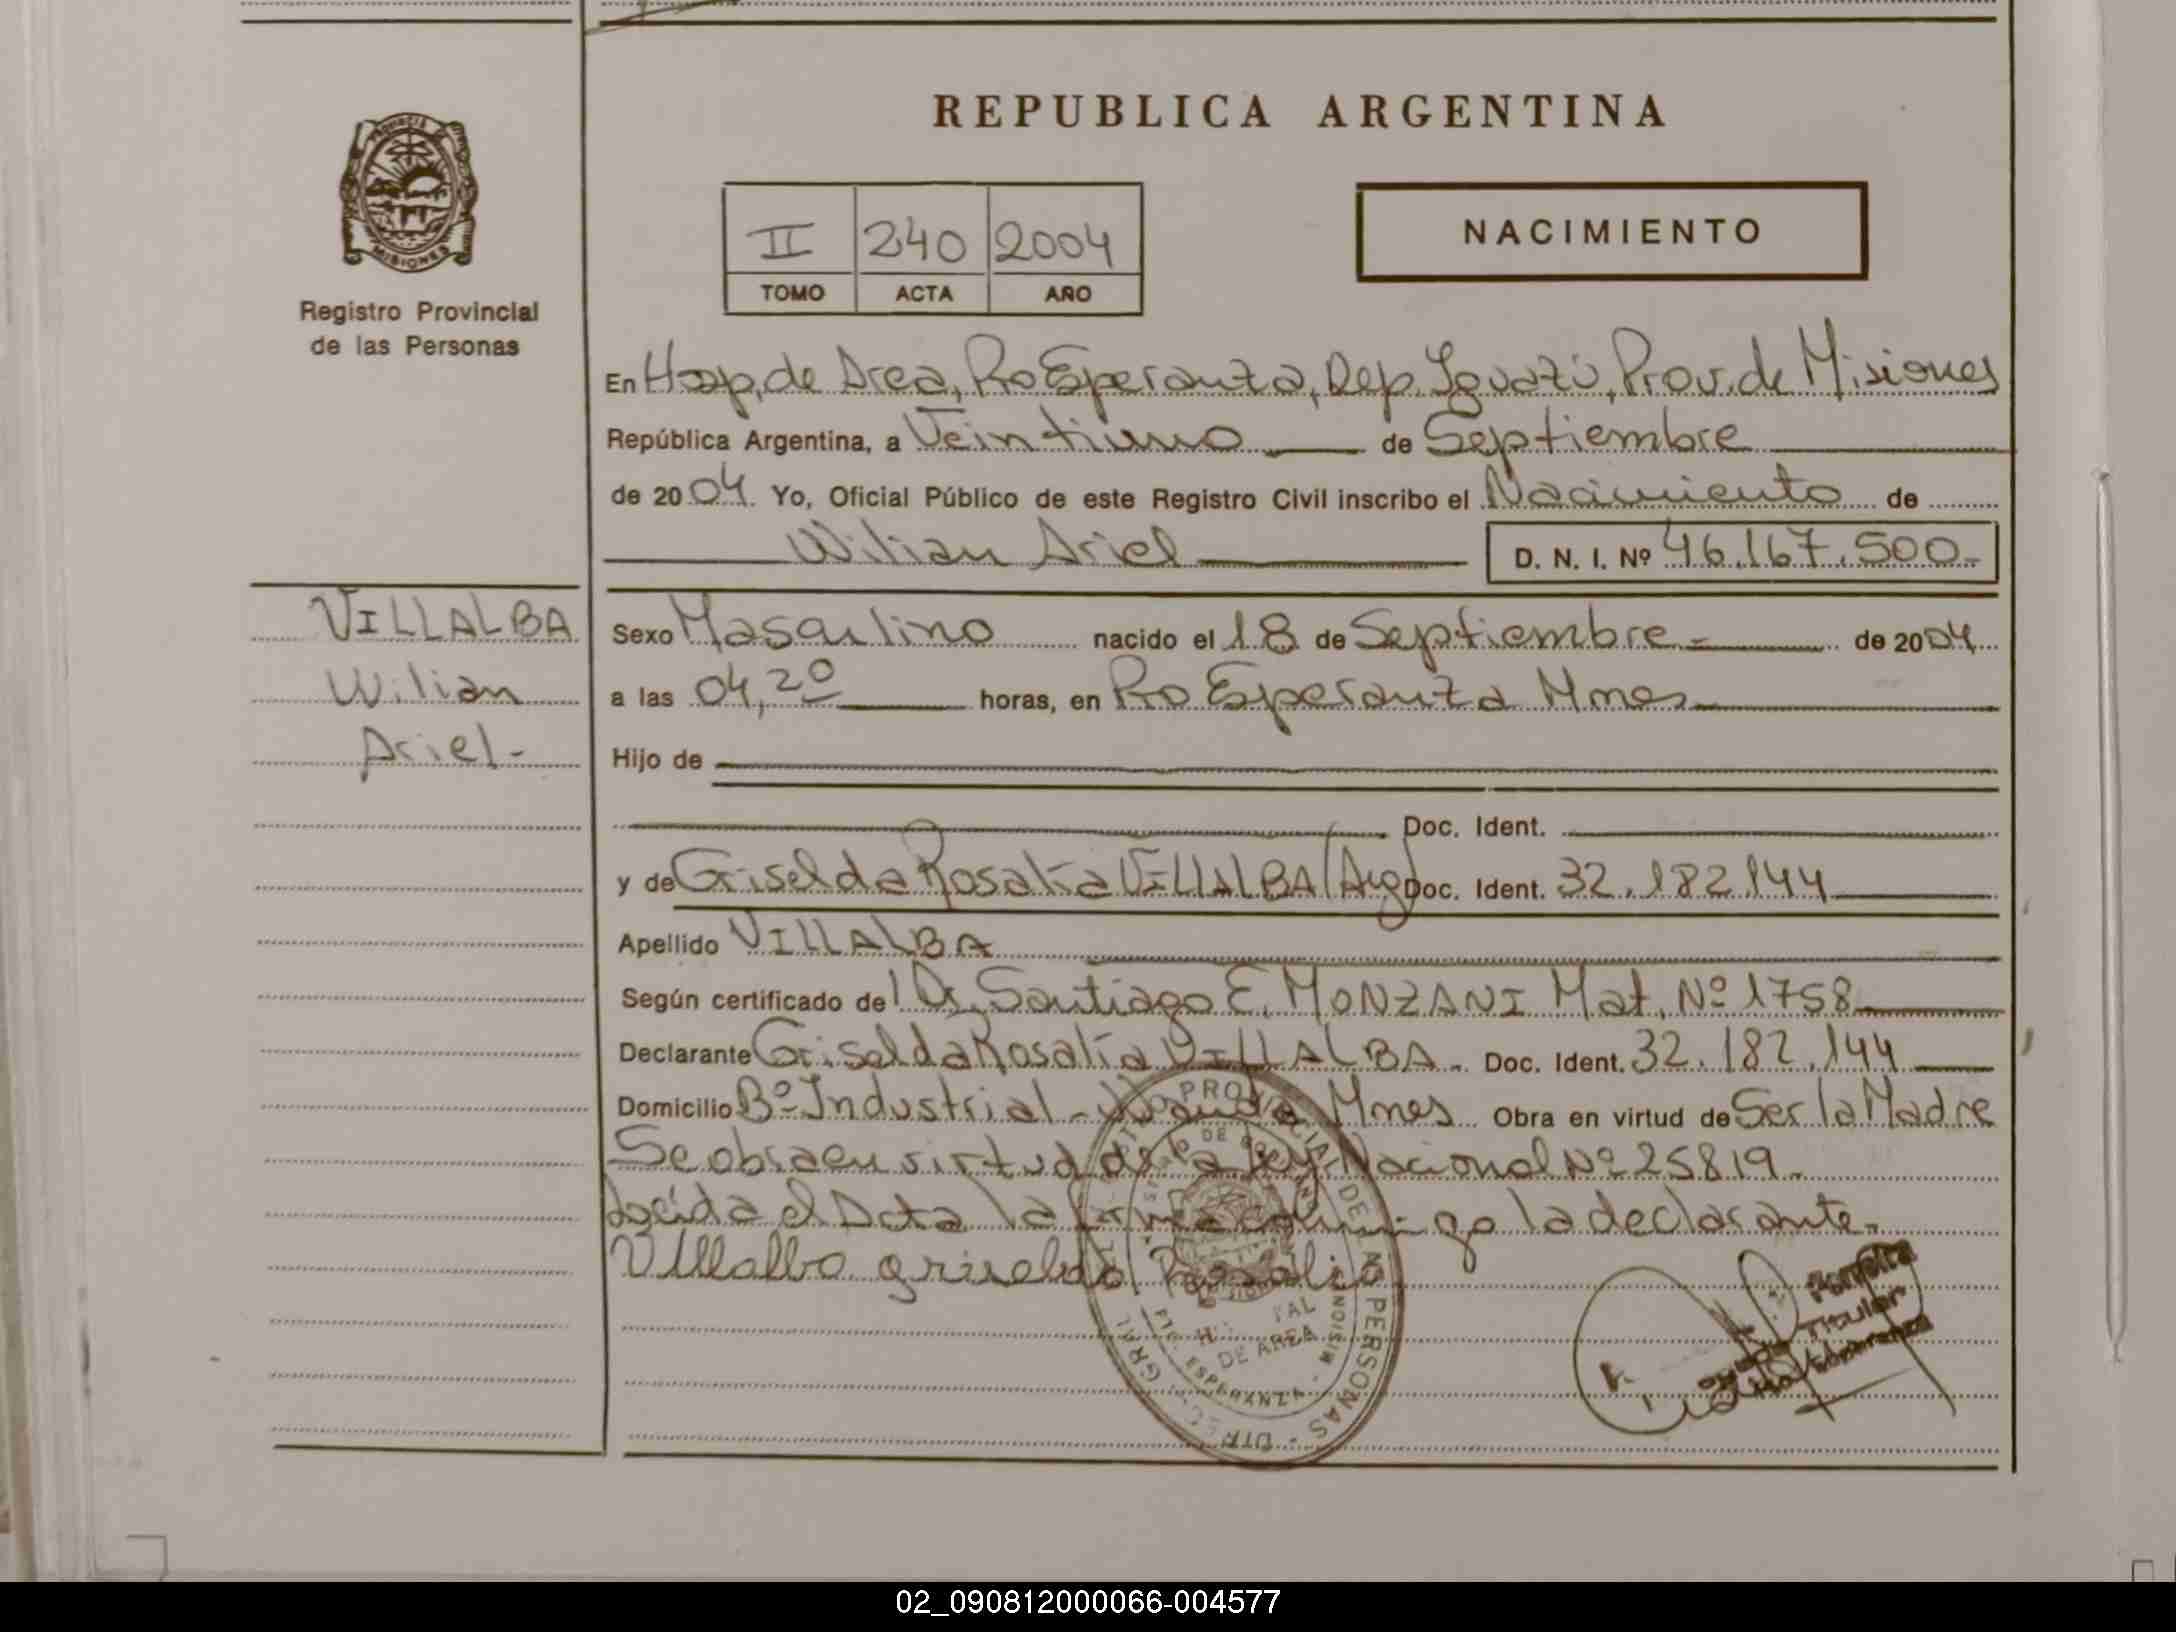 REPUBLICA ARGENTINA
MISIONES
Registro Provincial
de las Personas
II 240 2004
TOMO ACTA AÑO
NACIMIENTO
En Hosp. de Area, Pto Esperanza, Dep. Iguazú, Prov. de Misiones
República Argentina, a Veintiuno de Septiembre
de 2004. Yo, Oficial Público de este Registro Civil inscribo el Nacimiento de
Wilian Ariel D. N. I. Nº 46.167.500-
VILLALBA
Wilian
Ariel-
Sexo Masculino nacido el 18 de Septiembre - de 2004
a las 04,20 horas, en Pto Esperanza Mnes
Hijo de
Doc. Ident.
y de Griselda Rosalía VILLALBA (Arg) Doc. Ident. 32.182.144
Apellido VILLALBA
Según certificado del Dr. Santiago E. MONZANI Mat. Nº 1758
Declarante Griselda Rosalía VILLALBA. Doc. Ident. 32.182.144
Domicilio Bº Industrial - Wanda Mnes Obra en virtud de Ser la Madre
Se obra en virtud de la Ley Nacional Nº 25819.
Leída el Acta la firma conmigo la declarante.
Villalba griselda Rosalia
PROVINCIAL DE LAS PERSONAS
HOSPITAL
DE AREA
ESPERANZA - MISIONES
Titular
Esperanza
02_090812000066-004577